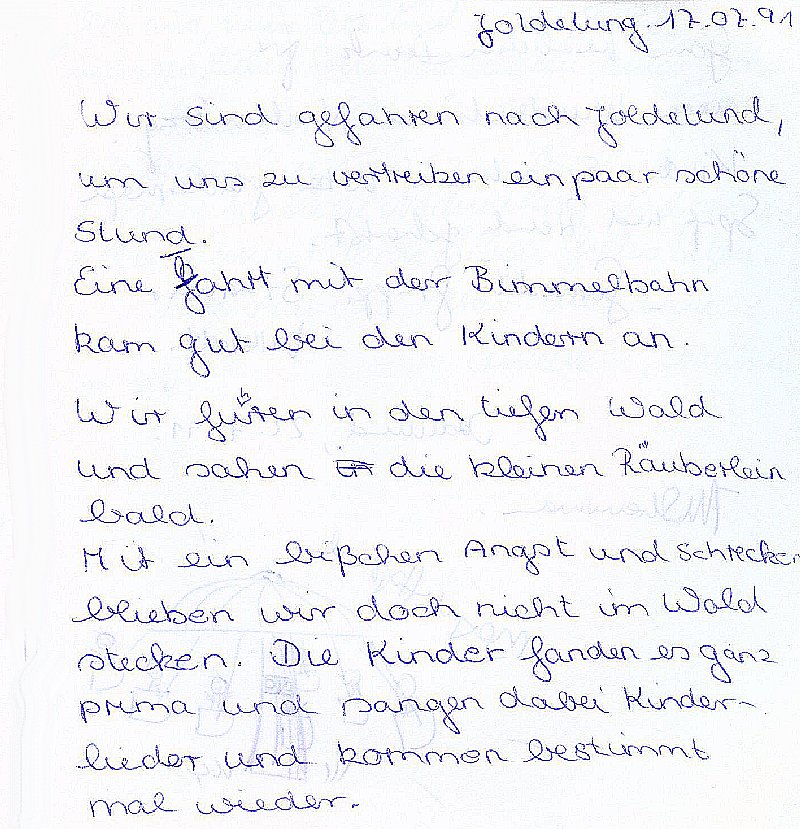 Joldelung. 17.07.91
Wir sind gefahren nach Joldelund,
um uns zu vertreiben ein paar schöne
Stund.
Eine Fahrt mit der Bimmelbahn
kam gut bei den Kindern an.
Wir fuhren in den tiefen Wald
und sahen die kleinen Räuberlein
bald.
Mit ein bißchen Angst und Schrecken
blieben wir doch nicht im Wald
stecken. Die Kinder fanden es ganz
prima und sangen dabei Kinder-
lieder und kommen bestimmt
mal wieder.